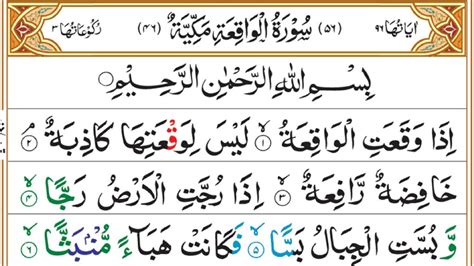 اٰیَاتُهَا ۹۶ (۵۶) سُوْرَةُ الْوَاقِعَةِ مَكِّيَّةٌ (۴۶) رُكُوْعَاتُهَا ۳
بِسْمِ اللهِ الرَّحْمٰنِ الرَّحِيْمِ
اِذَا وَقَعَتِ الْوَاقِعَةُ ۙ﴿۱﴾ لَيْسَ لِوَقْعَتِهَا كَاذِبَةٌ ۘ﴿۲﴾
خَافِضَةٌ رَّافِعَةٌ ۙ﴿۳﴾ اِذَا رُجَّتِ الْاَرْضُ رَجًّا ۙ﴿۴﴾
وَّ بُسَّتِ الْجِبَالُ بَسًّا ۙ﴿۵﴾ فَكَانَتْ هَبَآءً مُّنْۢبَثًّا ۙ﴿۶﴾